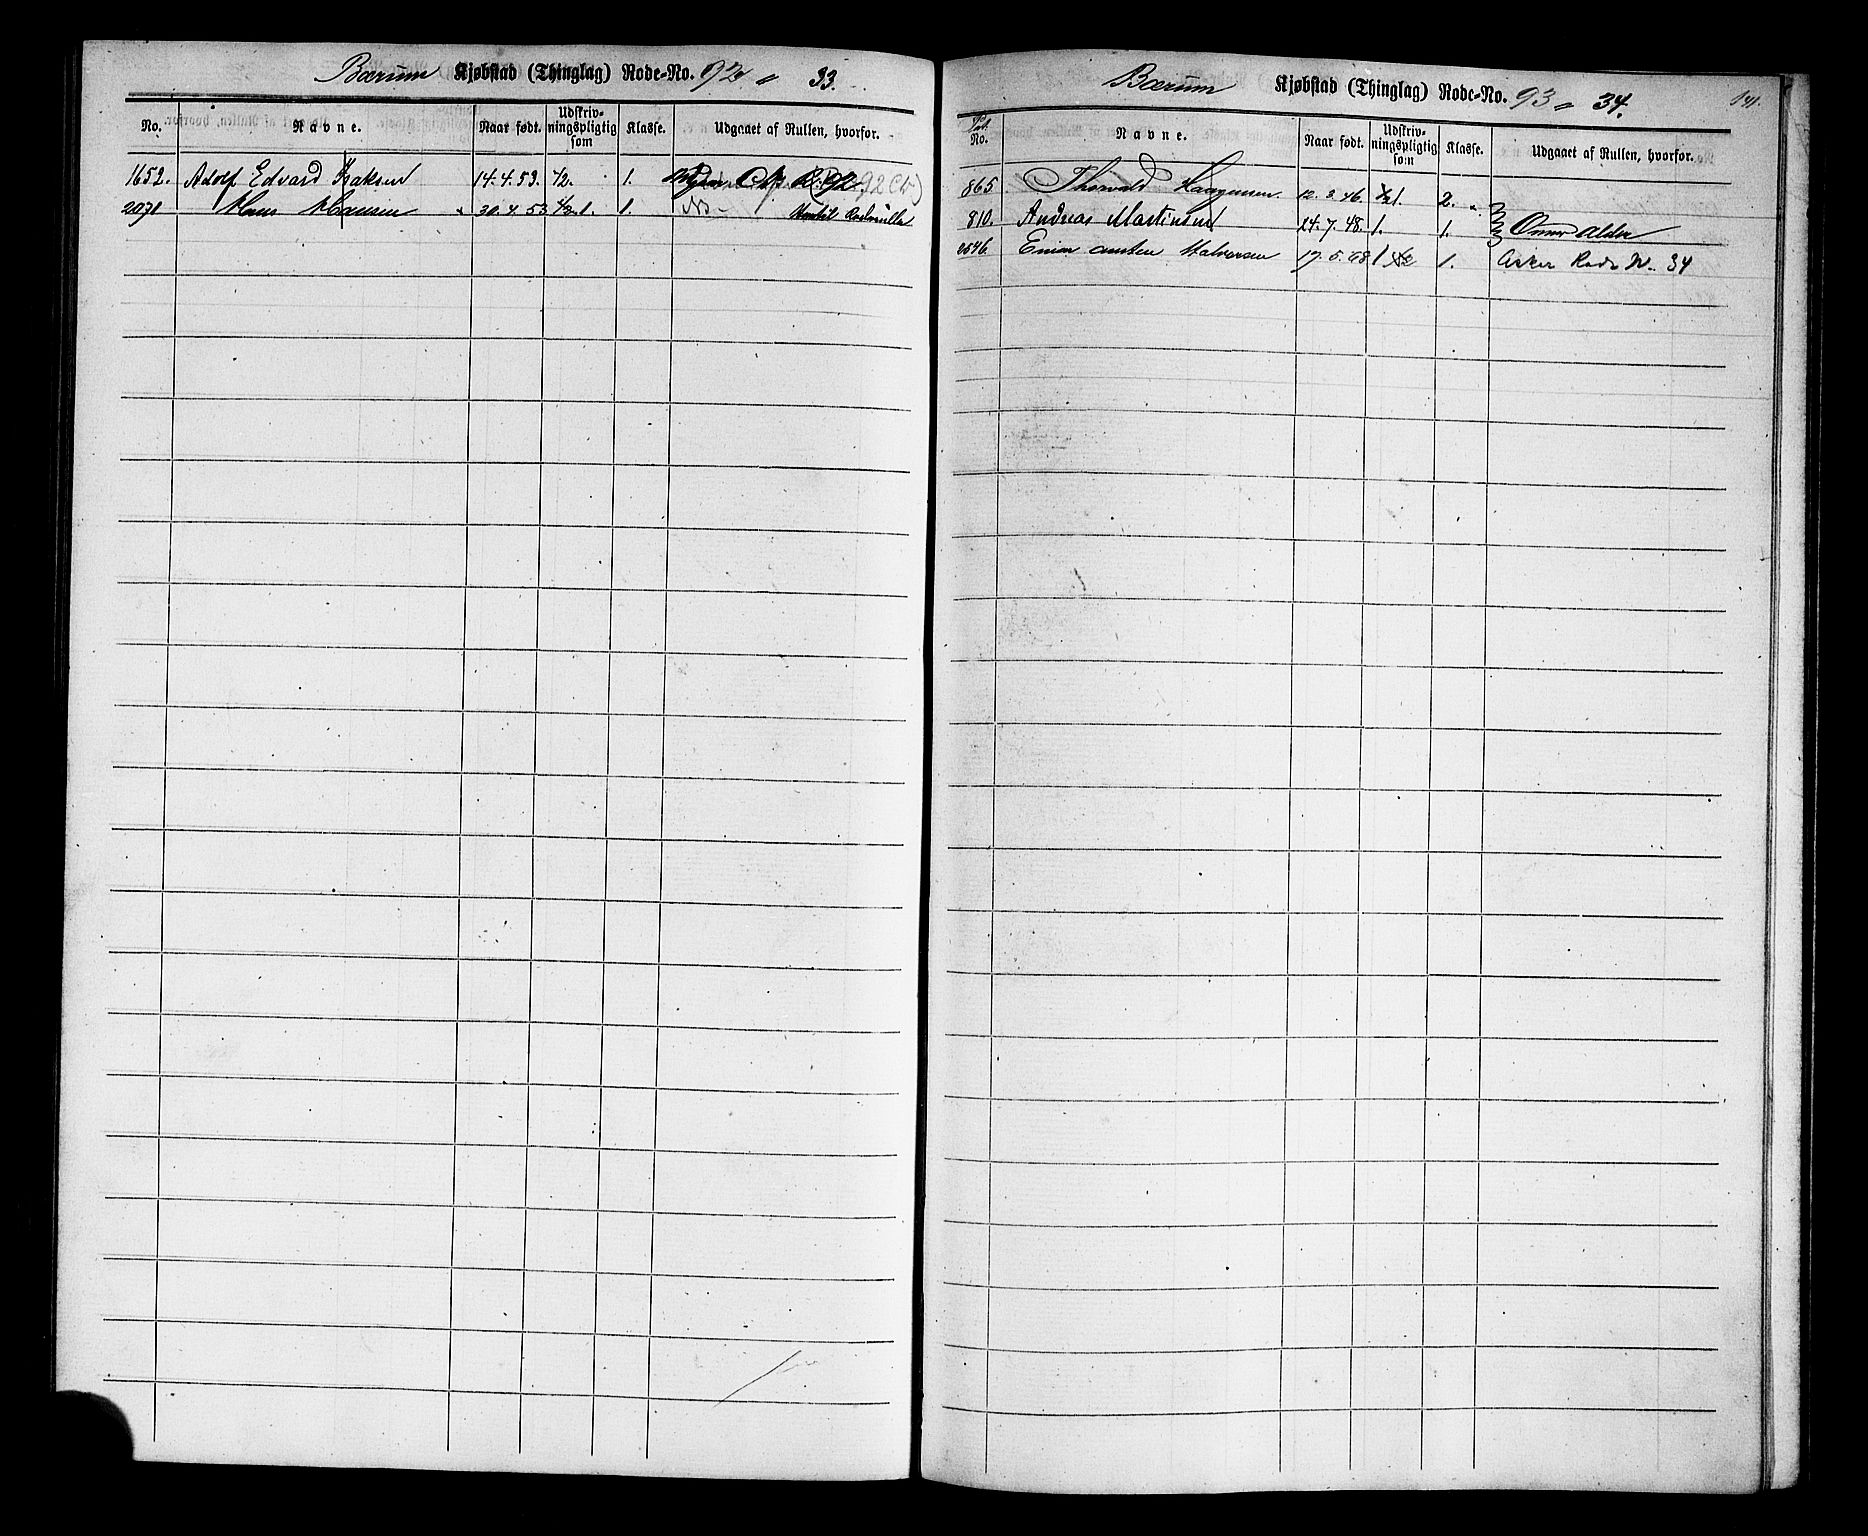 Bærum Kjøbstad (Thinglag) Rode-No. 92 " 33.
No. Navne. Naar født. Udskriv-ningspligtig som Klasse. Udgaaet af Rullen, hvorfor.
1652. Adolf Edvard Isaksen 14.4.53. 1/2. 1.
2071 Hans Hansen 30.4.53 1. 1.
Bærum Kjøbstad (Thinglag) Rode-No. 93 " 34.
No. Navne. Naar født. Udskriv-ningspligtig som Klasse. Udgaaet af Rullen, hvorfor.
865. Thorvald Haagensen 12.3.46. 1. 2.
810. Andreas Martinsen 24.7.48. 1. 1. Over Alder
2546. Halvorsen 1 1. Asker Rode N. 34